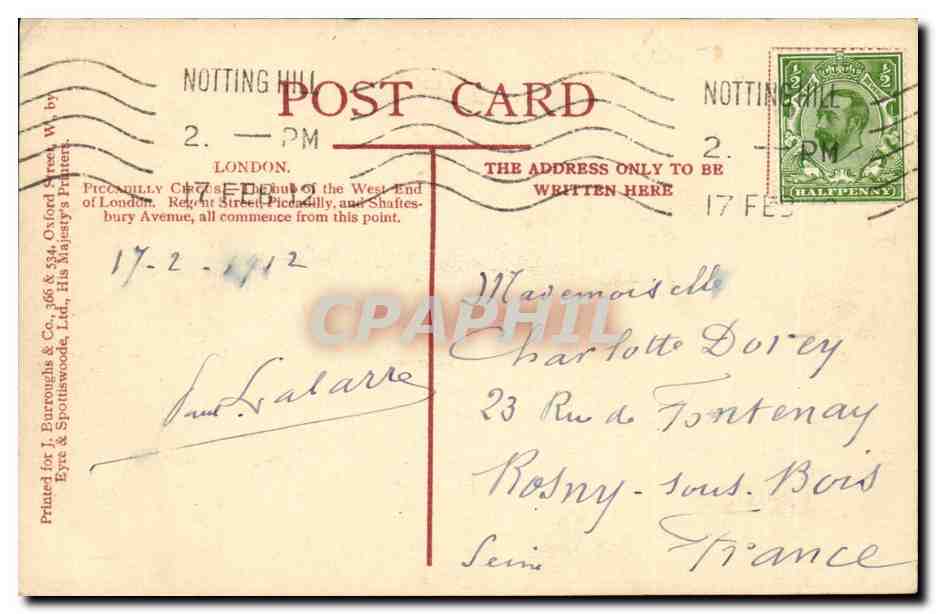 NOTTING HILL
2. — PM
17 FEB 12
POST CARD
NOTTING HILL
2. — PM
17 FEB
½ ½
HALFPENNY
LONDON.
PICCADILLY CIRCUS. The hub of the West End
of London. Regent Street, Piccadilly, and Shaftes-
bury Avenue, all commence from this point.
THE ADDRESS ONLY TO BE
WRITTEN HERE
17-2-1912
Paul Lalarre
Mademoiselle
Charlotte Dorey
23 Rue de Fontenay
Rosny-sous-Bois
Seine France
CPAPHIL
Printed for J. Burroughs & Co., 366 & 534, Oxford Street, W., by
Eyre & Spottiswoode, Ltd., His Majesty's Printers.